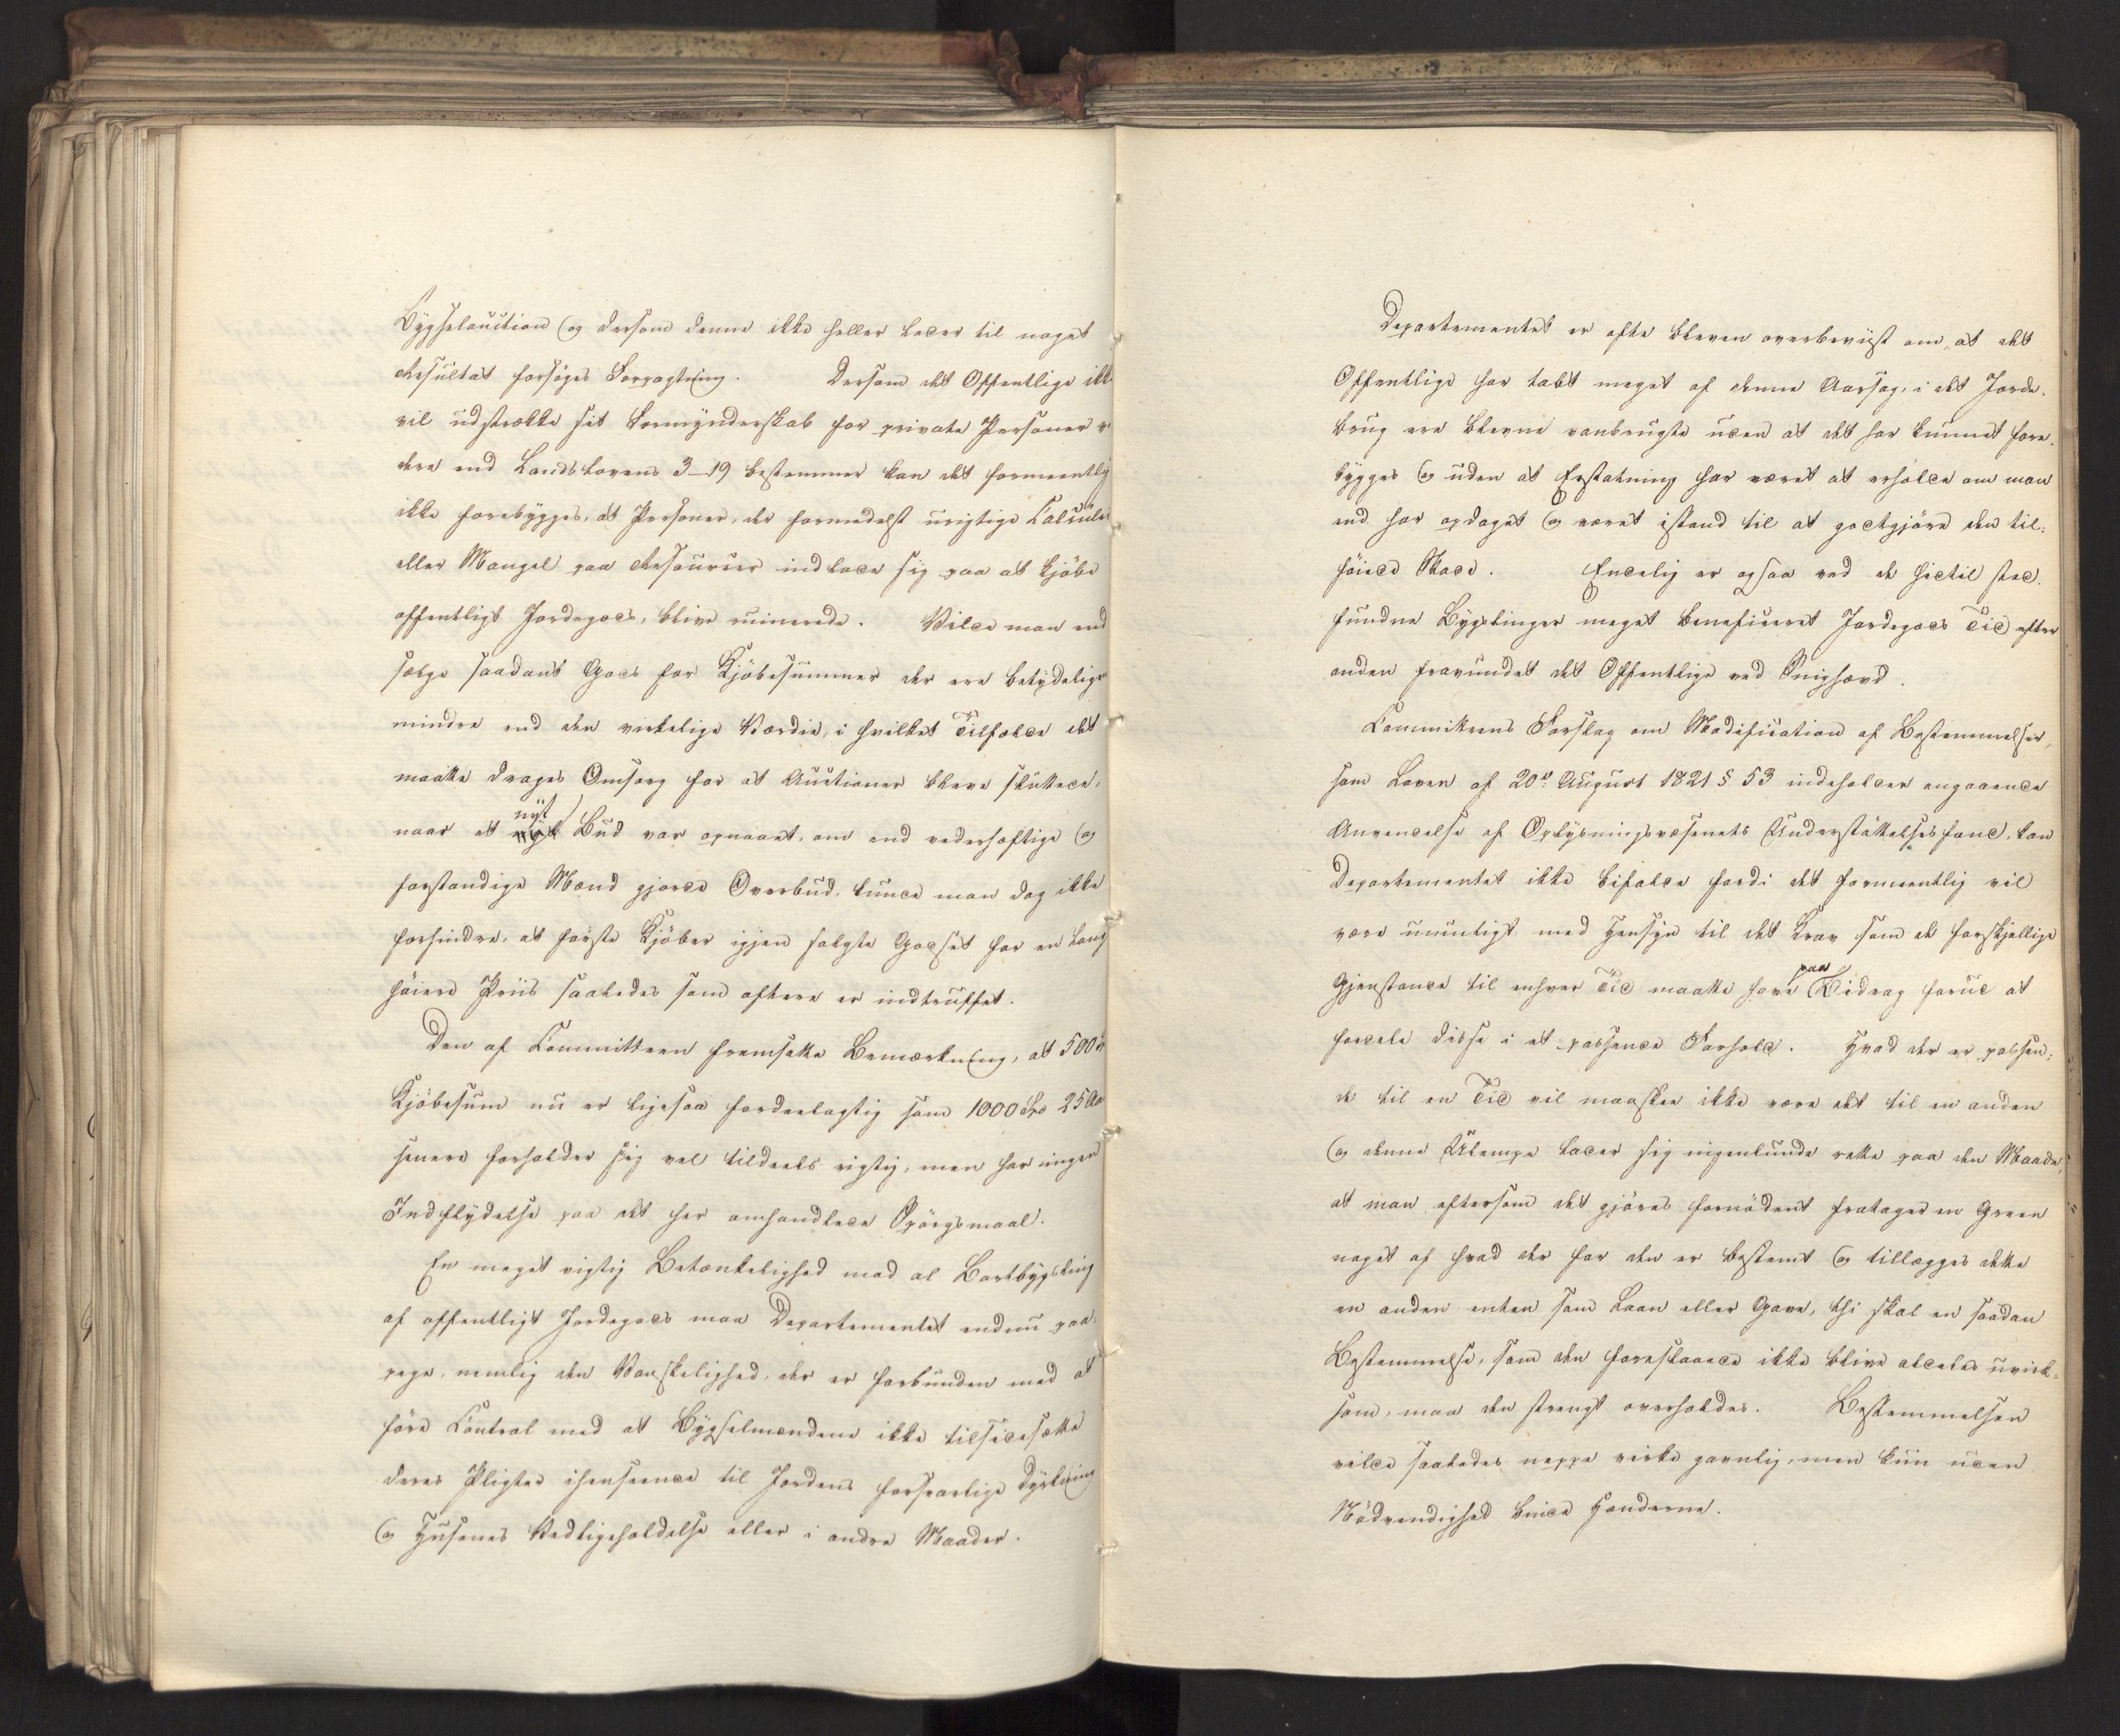 Bygselauction og dersom denne ikke heller leder til noget
Resultat forsøges Forpagtning. Dersom det Offentlige ikke
vil udstrække sit Formynderskab for private Personer
dere end Landslovens 3-19 bestemmer kan det formeentlig
ikke forebygges, at Personer, der formedelst urigtige Calcüler
eller Mangel paa Resourcer indlade sig paa at kjøbe
offentligt Jordegods, blive ruinerede. Vilde man end
sælge saadant Gods for Kjøbesummer der ere betydelige
mindre end den virkelige Værdie, i hvilket Tilfælde det
maatte drages Omsorg for at Auctioner bleve sluttede,
naar et nyt Bud var opnaaet, om end vederhæftige og
forstandige Mænd gjorde Overbud, kunde man dog ikke
forhindre, at første Kjøber igjen solgte Godset for en lang
høiere Priis saaledes som oftere er indtruffet.
Den af Committeen fremsatte Bemærkning, at 500
Kjøbesum nu er ligesaa fordeelagtig som 1000 25 Aar
senere forholder sig vel tildeels rigtig, men har ingen
Indflydelse paa det her omhandlede Spørgsmaal.
En meget vigtig Betænkelighed mod al Bortbygsling
af offentligt Jordegods maa Departementet endnu paa-
pege, nemlig den Vanskelighed, der er forbunden med at
føre Control med at Bygselmændene ikke tilsidesætte
deres Pligter ihenseende til Jordens forsvarlige Dyrkning
og Husenes Vedligeholdelse eller i andre Maader.
Departementet er ofte bleven overbeviist om, at det
Offentlige har tabt meget af denne Aarsag, i det Jorde-
brug ere blevne vanbrugte uden at det har kunnet fore-
bygges og uden at Erstatning har været at erholde om man
end har opdaget og været istand til at godtgjøre den til-
føiede Skade. Endelig er ogsaa ved de hidtil sted-
fundne Bygslinger meget beneficeret Jordegods Tid efter
anden fravundet det Offentlige ved Snighævd.
Committeens Forslag om Modification af Bestemmelser,
som Loven af 20de August 1821 § 53 indeholder angaaende
Anvendelse af Oplysningsvæsenets Understøttelsesfond, kan
Departementet ikke bifalde fordi det formeentlig vil
være umuligt med Hensyn til det Krav som de forskjellige
Gjenstande til enhver Tid maatte have paa Bidrag forud at
fordele disse i et passende Forhold. Hvad der er passen-
de til en Tid vil maaskee ikke være det til en anden
og denne Ulempe lader sig ingenlunde rette paa den Maade,
at man eftersom det gjøres fornødent fratager en Green
noget af hvad der for den er bestemt og tillægges dette
en anden enten som Laan eller Gave, thi skal en saadan
Bestemmelse, som den foreslaaede ikke blive aldeles uvirk-
som, maa den strengt overholdes. Bestemmelsen
vilde saaledes neppe virke gavnlig, men kun uden
Nødvendighed binde Hænderne.